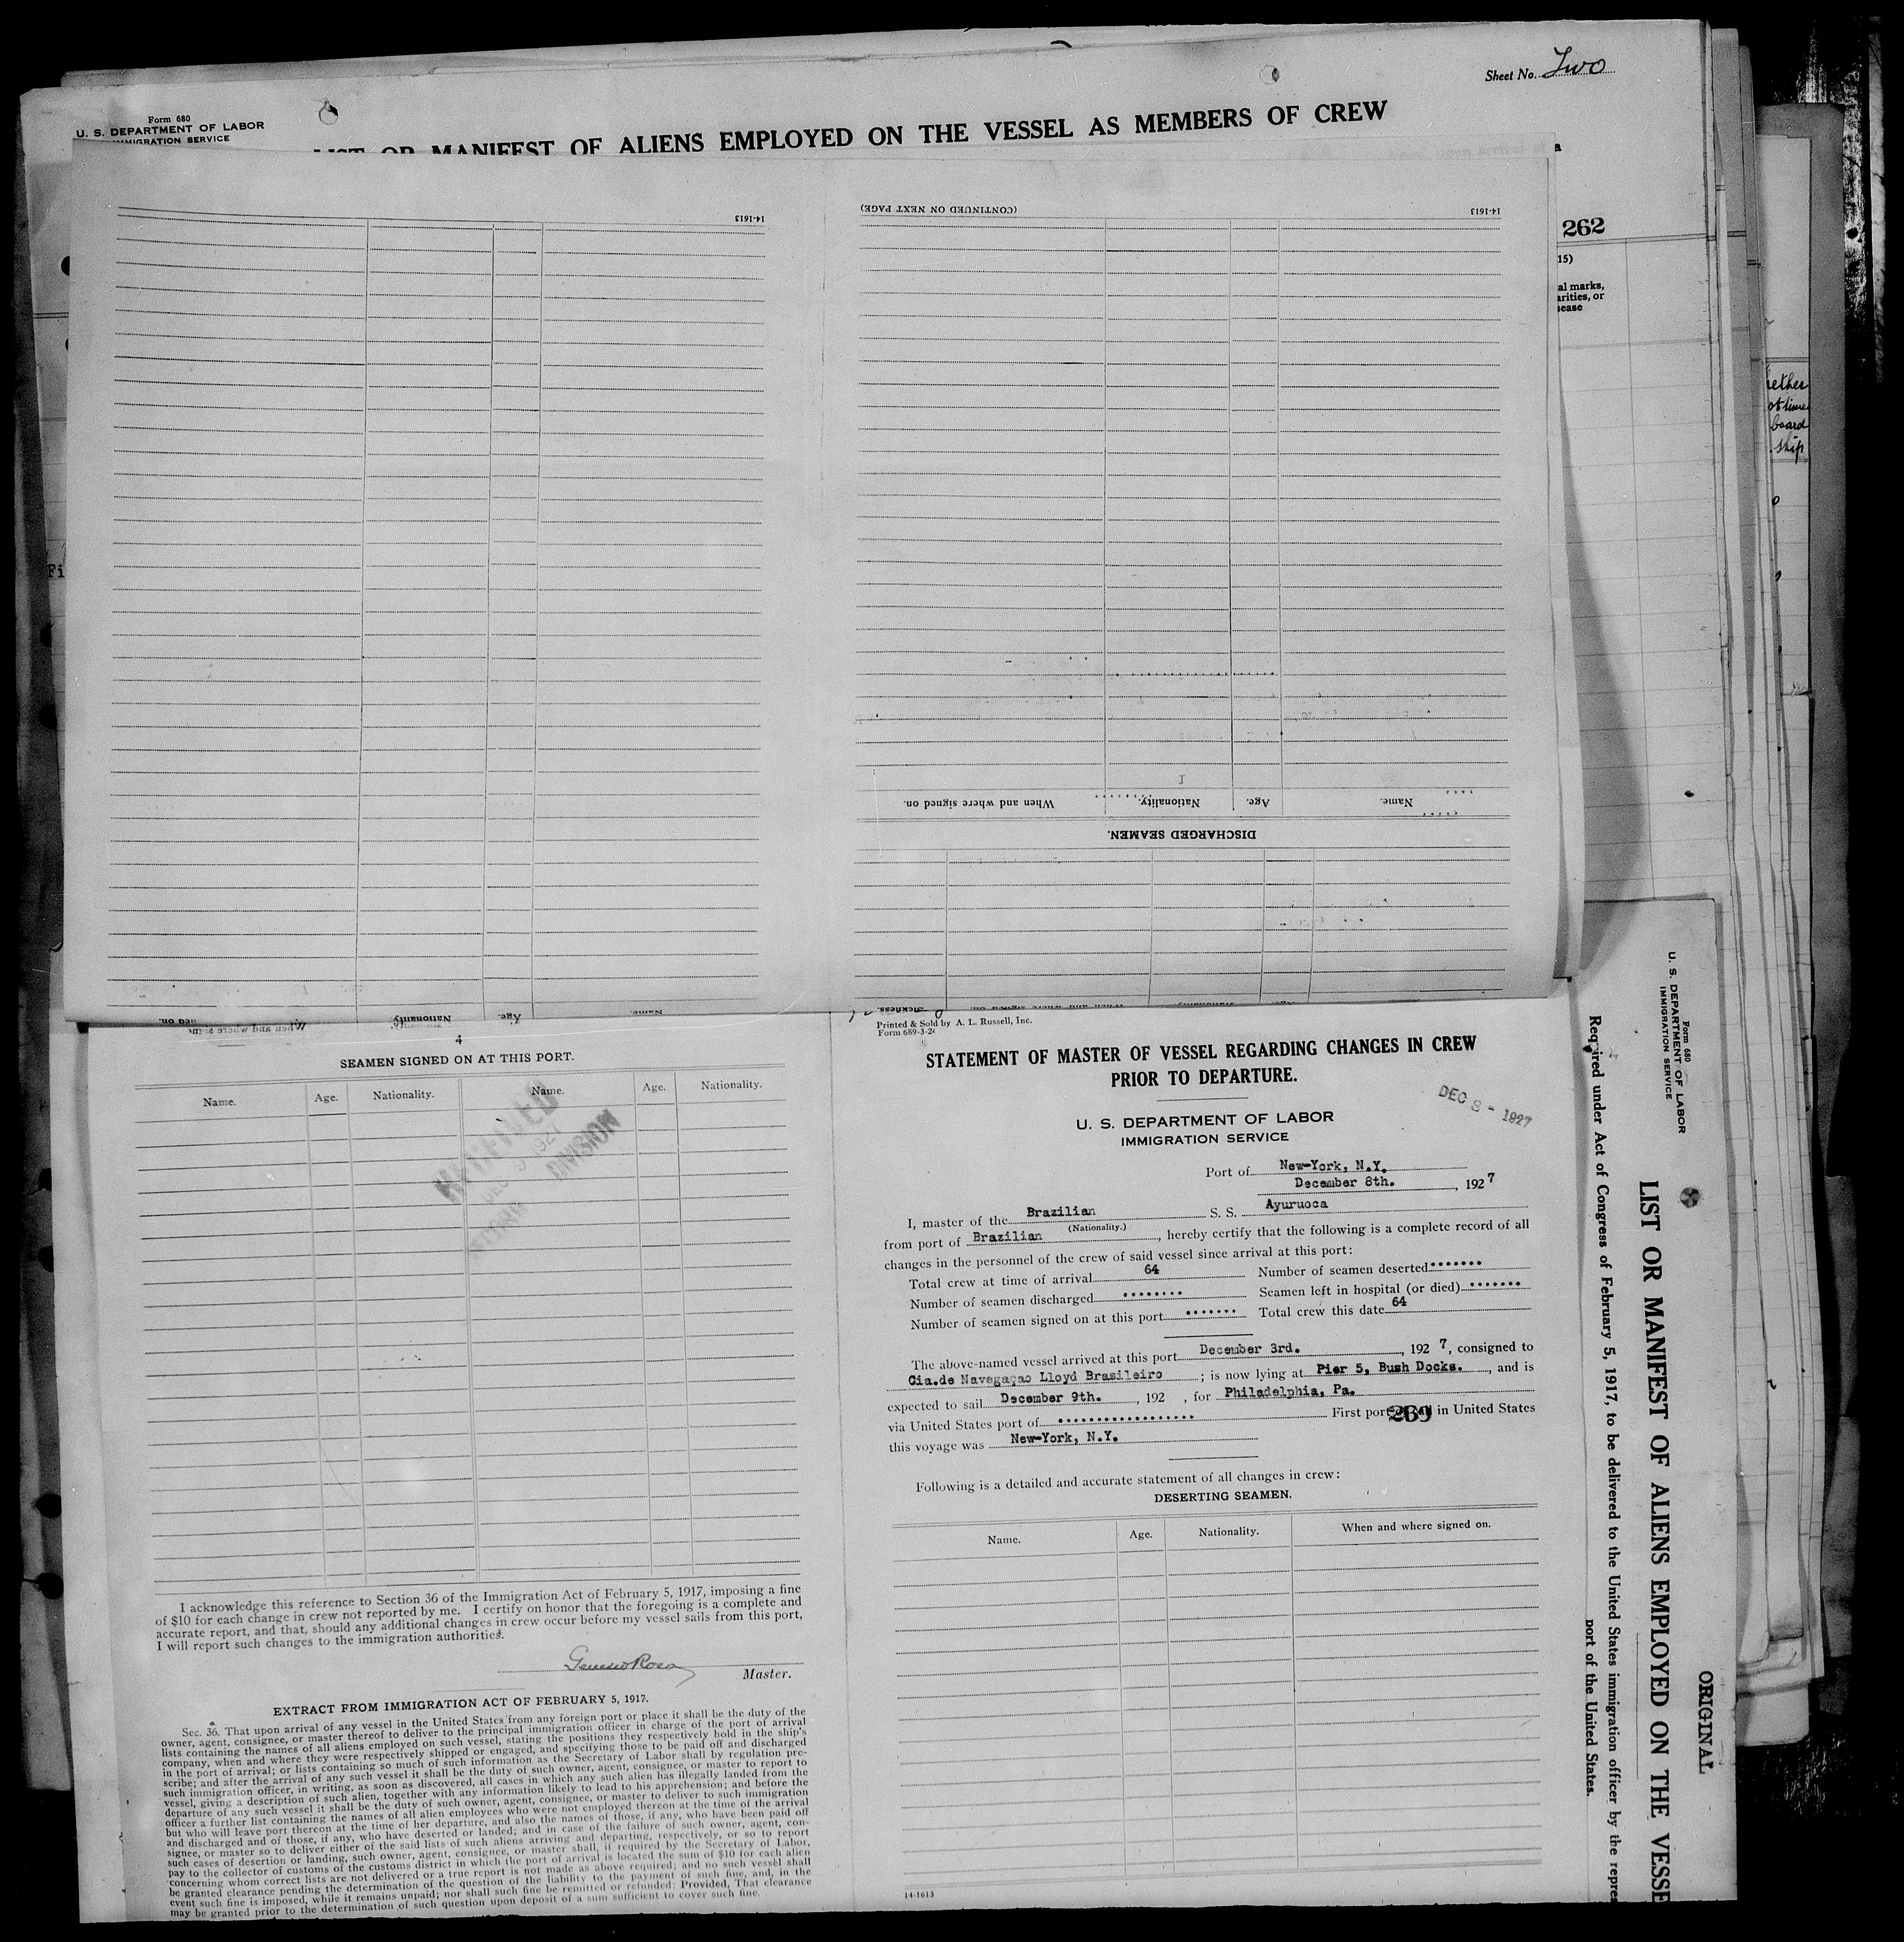 Sheet No. Two
Form 680
U. S. DEPARTMENT OF LABOR
IMMIGRATION SERVICE
LIST OR MANIFEST OF ALIENS EMPLOYED ON THE VESSEL AS MEMBERS OF CREW
262
15)
al marks,
arities, or
sease
hether
at time
board
ship
Fi
14-1613
(CONTINUED ON NEXT PAGE)
14-1613
When and where signed on.
Nationality.
Age.
Name.
DISCHARGED SEAMEN.
Sickness.
When and where signed on.
Nationality.
Age.
Name.
4
SEAMEN SIGNED ON AT THIS PORT.
Name. Age. Nationality. Name. Age. Nationality.
RECEIVED
DEC 9 1927
DIVISION
I acknowledge this reference to Section 36 of the Immigration Act of February 5, 1917, imposing a fine
of $10 for each change in crew not reported by me. I certify on honor that the foregoing is a complete and
accurate report, and that, should any additional changes in crew occur before my vessel sails from this port,
I will report such changes to the immigration authorities.
Master.
EXTRACT FROM IMMIGRATION ACT OF FEBRUARY 5, 1917.
Sec. 36. That upon arrival of any vessel in the United States from any foreign port or place it shall be the duty of the
owner, agent, consignee, or master thereof to deliver to the principal immigration officer in charge of the port of arrival
lists containing the names of all aliens employed on such vessel, stating the positions they respectively hold in the ship's
company, when and where they were respectively shipped or engaged, and specifying those to be paid off and discharged
in the port of arrival; or lists containing so much of such information as the Secretary of Labor shall by regulation pre-
scribe; and after the arrival of any such vessel it shall be the duty of such owner, agent, consignee, or master to report to
such immigration officer, in writing, as soon as discovered, all cases in which any such alien has illegally landed from the
vessel, giving a description of such alien, together with any information likely to lead to his apprehension; and before the
departure of any such vessel it shall be the duty of such owner, agent, consignee, or master to deliver to such immigration
officer a further list containing the names of all alien employees who were not employed thereon at the time of the arrival
but who will leave port thereon at the time of her departure, and also the names of those, if any, who have been paid off
and discharged and of those, if any, who have deserted or landed; and in case of the failure of such owner, agent, con-
signee, or master so to deliver either of the said lists of such aliens arriving and departing, respectively, or so to report
such cases of desertion or landing, such owner, agent, consignee, or master shall, if required by the Secretary of Labor,
pay to the collector of customs of the customs district in which the port of arrival is located the sum of $10 for each alien
concerning whom correct lists are not delivered or a true report is not made as above required; and no such vessel shall
be granted clearance pending the determination of the question of the liability to the payment of such fine, and, in the
event such fine is imposed, while it remains unpaid; nor shall such fine be remitted or refunded: Provided, That clearance
may be granted prior to the determination of such question upon deposit of a sum sufficient to cover such fine.
Printed & Sold by A. L. Russell, Inc.
Form 689-3-26
STATEMENT OF MASTER OF VESSEL REGARDING CHANGES IN CREW
PRIOR TO DEPARTURE.
DEC 8 - 1927
U. S. DEPARTMENT OF LABOR
IMMIGRATION SERVICE
Port of New-York, N.Y.
December 8th. , 1927
I, master of the Brazilian S. S. Ayuruoca
(Nationality.)
from port of Brazilian , hereby certify that the following is a complete record of all
changes in the personnel of the crew of said vessel since arrival at this port:
Total crew at time of arrival 64 Number of seamen deserted .......
Number of seamen discharged ........ Seamen left in hospital (or died) .......
Number of seamen signed on at this port ....... Total crew this date 64
The above-named vessel arrived at this port December 3rd. , 1927, consigned to
Cia.de Navegaçao Lloyd Brasileiro ; is now lying at Pier 5, Bush Docks. , and is
expected to sail December 9th. , 192 , for Philadelphia, Pa.
via United States port of ................... First port of call in United States
269
this voyage was New-York, N.Y.
Following is a detailed and accurate statement of all changes in crew:
DESERTING SEAMEN.
Name. Age. Nationality. When and where signed on.
14-1613
Form 680
U. S. DEPARTMENT OF LABOR
IMMIGRATION SERVICE
ORIGINAL
LIST OR MANIFEST OF ALIENS EMPLOYED ON THE VESSE
Required under Act of Congress of February 5, 1917, to be delivered to the United States immigration officer by the repres
port of the United States.